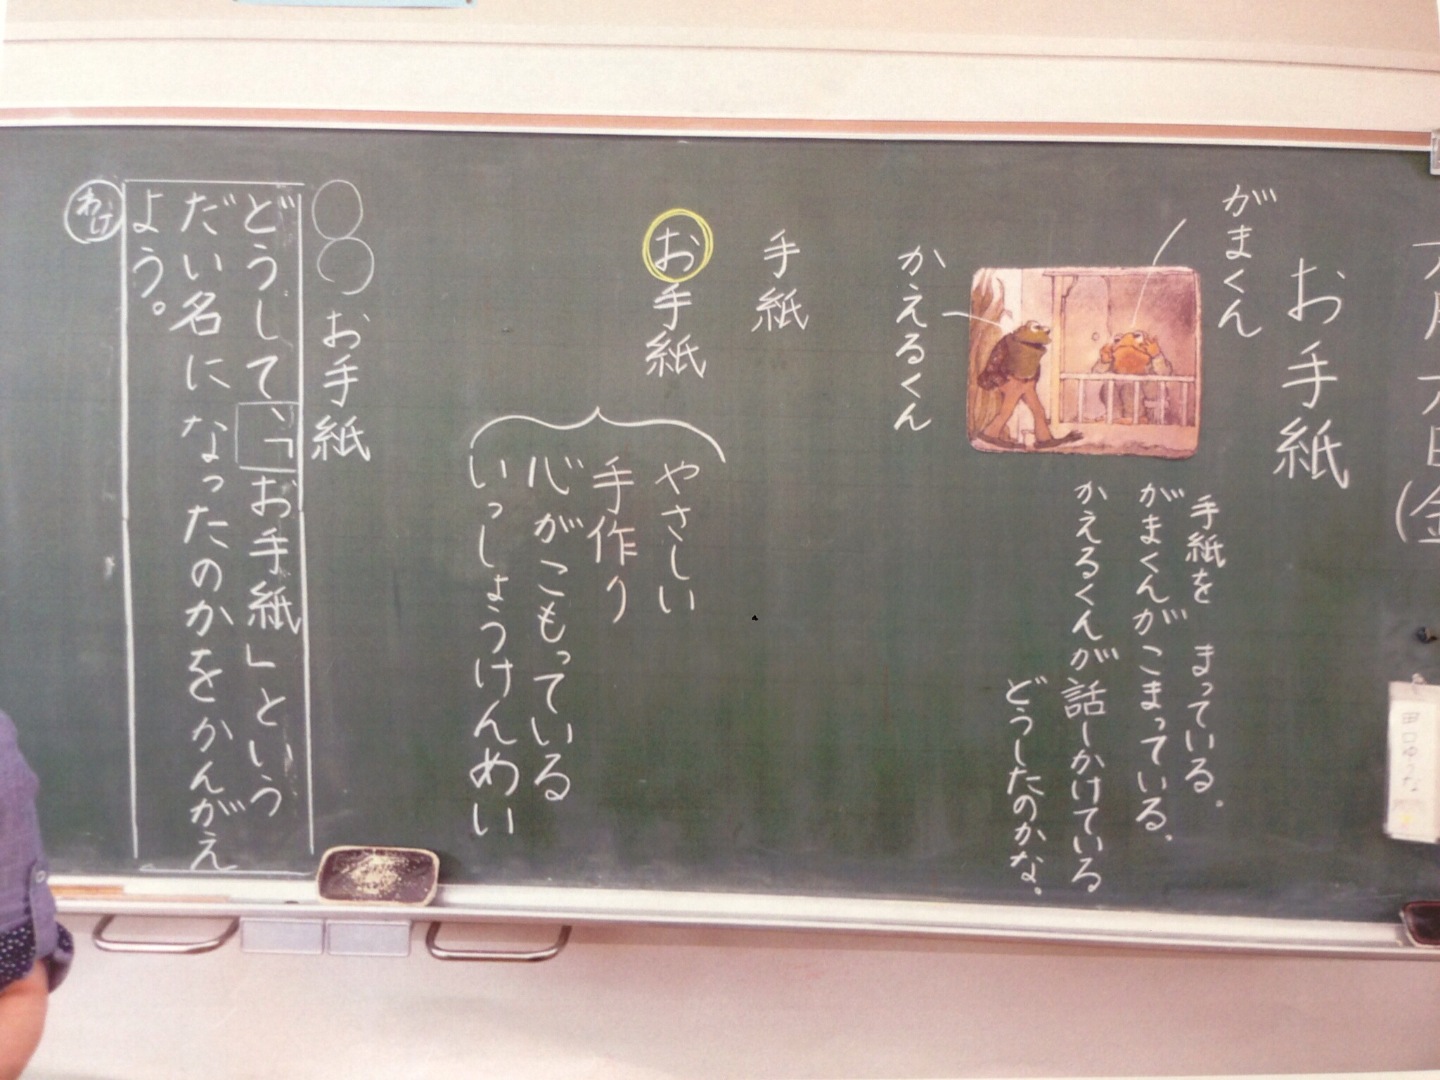 お手紙
がまくん
かえるくん
手紙を まっている。
がまくんがこまっている。
かえるくんが話しかけている
どうしたのかな。
手紙
お手紙
やさしい
手作り
心がこもっている
いっしょうけんめい
○○お手紙
どうして、「お手紙」という
だい名になったのかをかんがえ
よう。
わけ